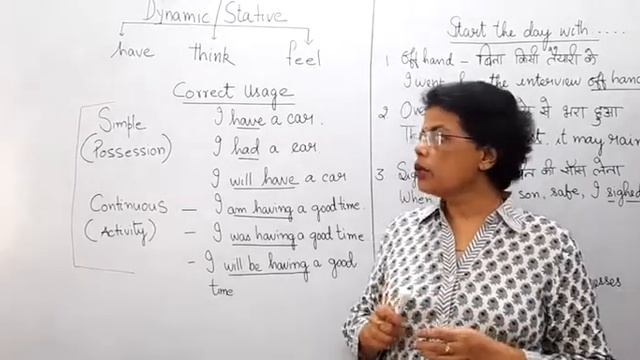 Dynamic/Stative
have think feel
Correct Usage
Simple
(Possession)
I have a car.
I had a car
I will have a car
Continuous
(Activity)
– I am having a good time.
– I was having a good time
- I will be having a good
time
Start the day with ....
1 Off hand – बिना किसी तैयारी के
I went for the interview off hand
2 से भरा हुआ
it may rain
3 की साँस लेना
When son, safe, I sighed